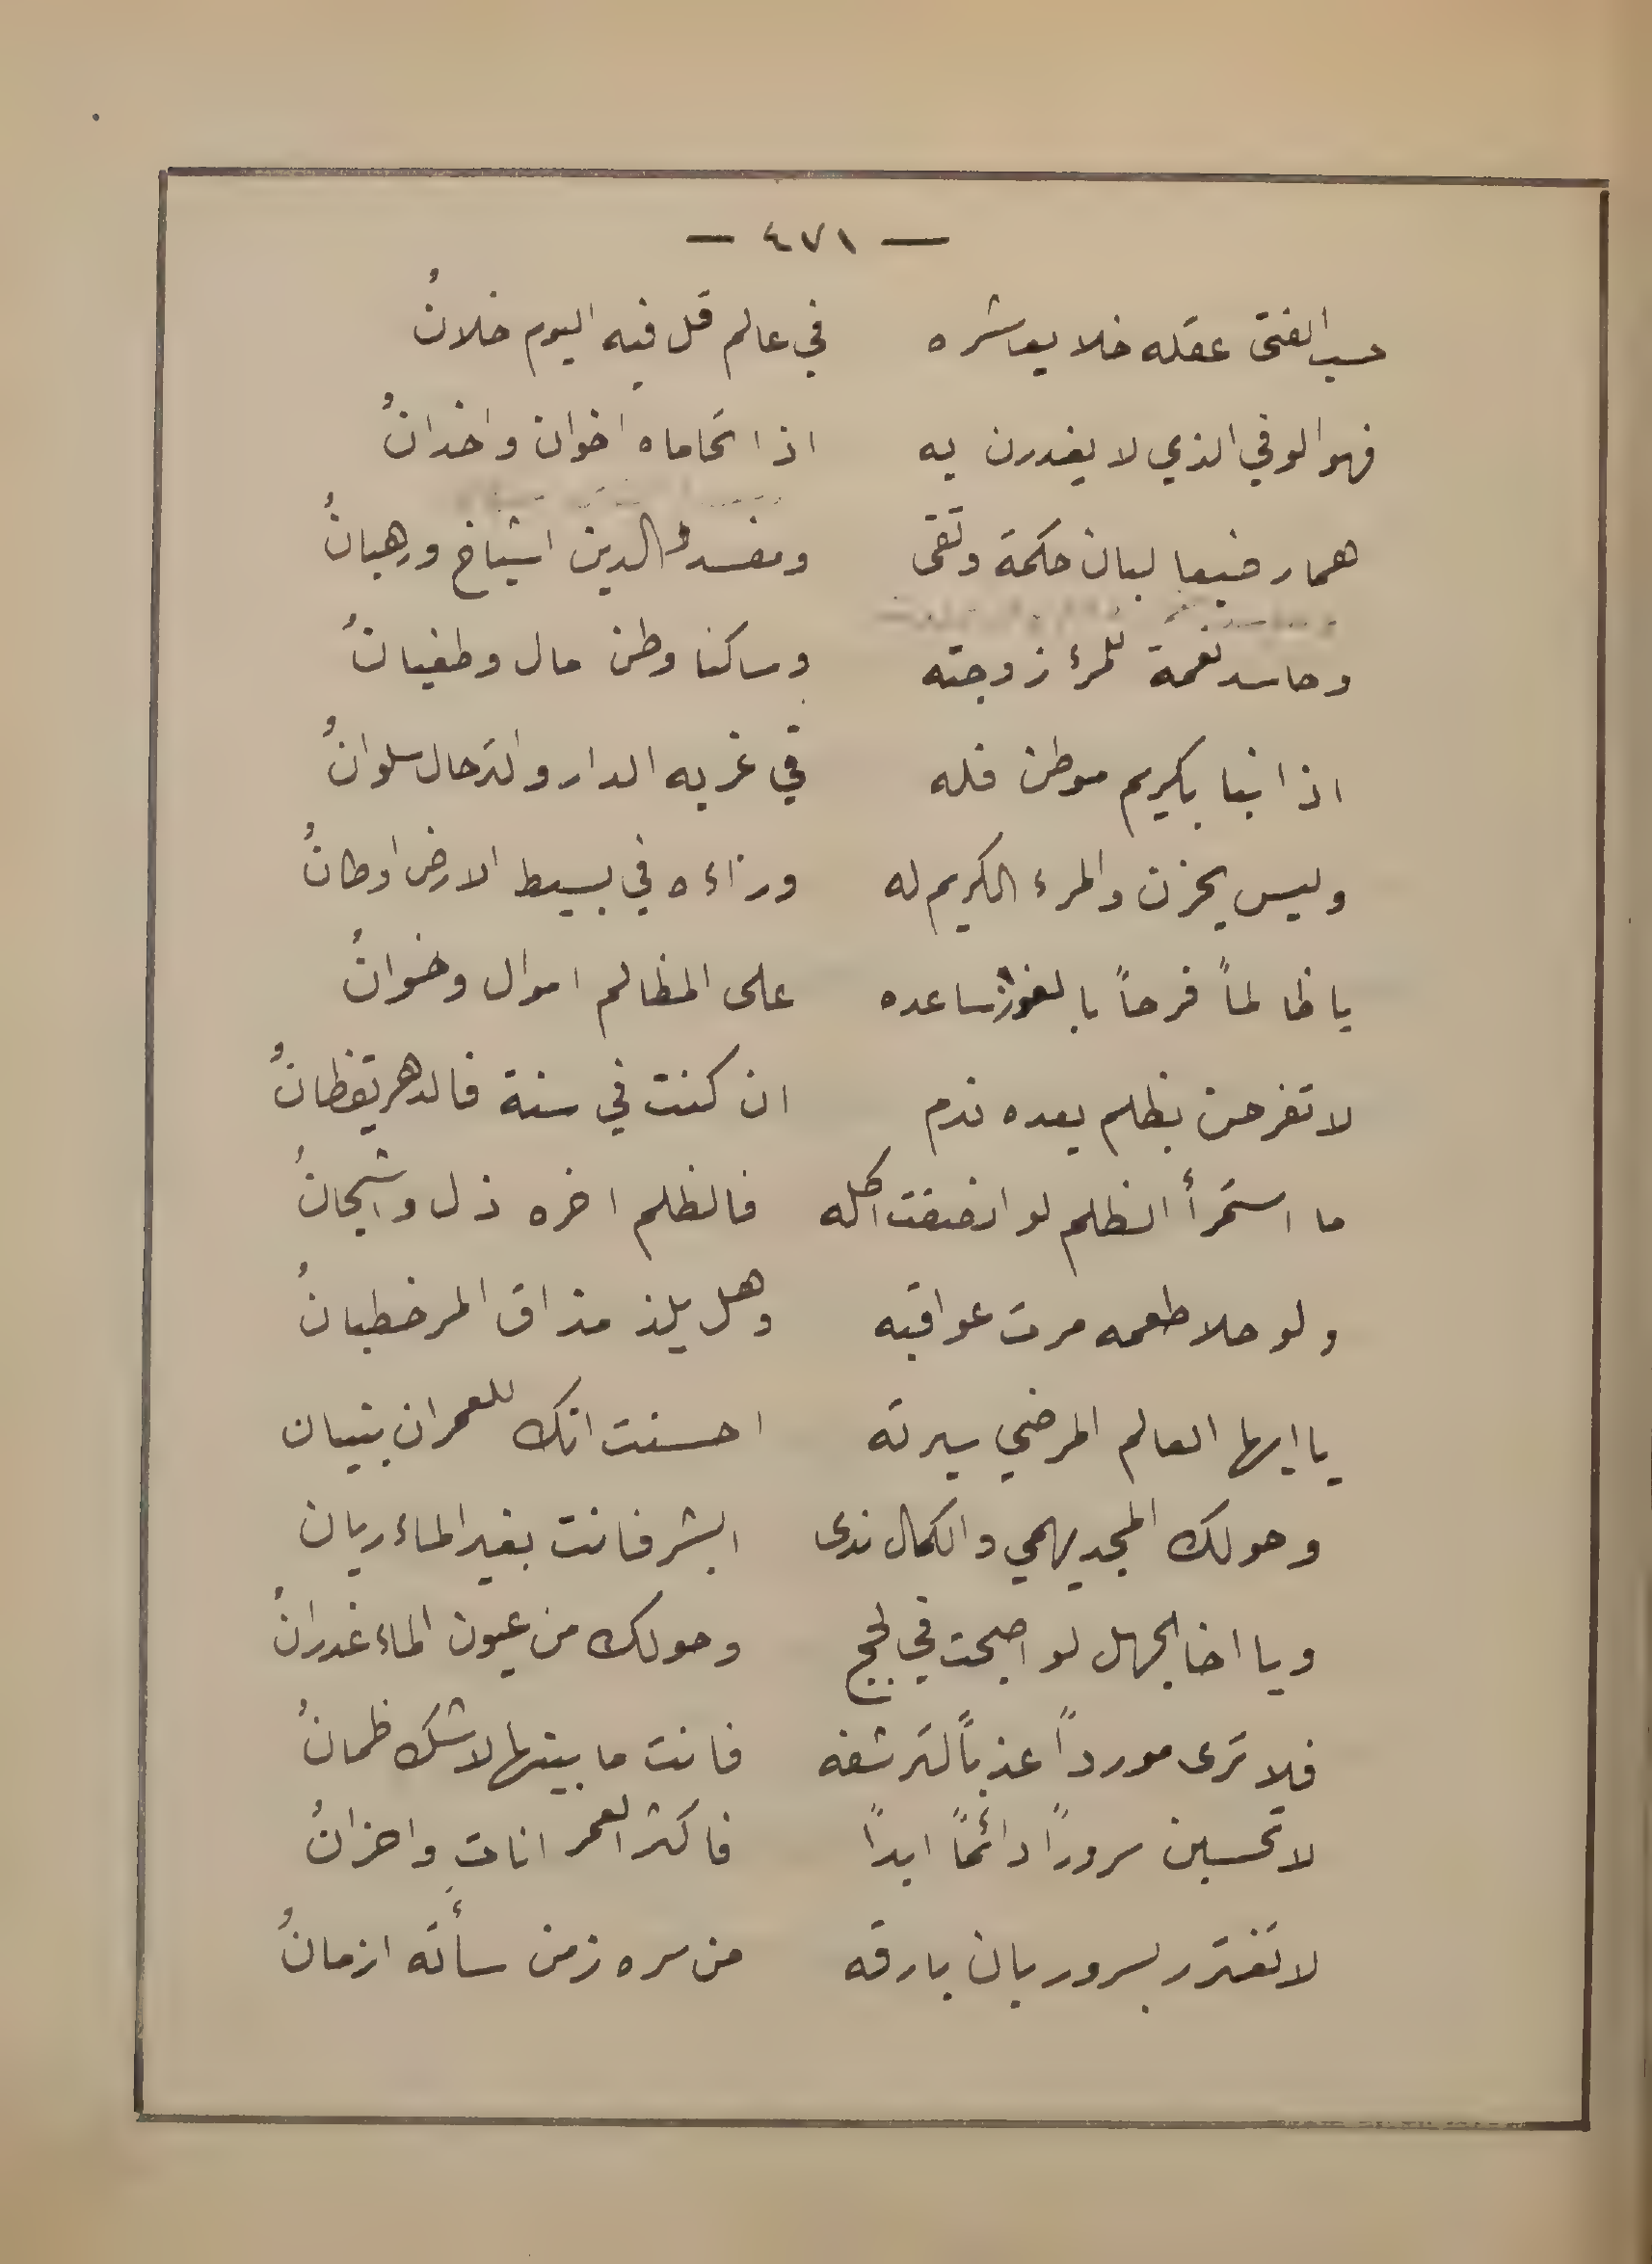 — ٤٧١ —
حسب الفتى عقله خلا يعاشره في عالم قل فيه اليوم خلانُ
فهو الوفي الذي لا يغدرن به اذا تحاماه اخوان واخدانُ
هما رضيعا لبان حكمة وتقى ومفسد الدين اشياخ ورهبانُ
وحاسد نعمة للمرء زوجته وساكنا وطن مال وطغيانُ
اذا نبا بكريم موطن فله في غربه الدار والترحال سلوانُ
وليس يحزن والمرء الكريم له وراءه في بسيط الارض اوطانُ
يا ظالماً فرحاً بالفوز ساعده على المظالم اموال وخوانُ
لا تفرحن بظلم بعده ندم ان كنت في سنة فالدهر يقظانُ
ما استمرأ الظلم لو انصفت اكله فالظلم اخره ذل واشجانُ
ولو حلا طعمه مرت عواقبه وهل يلذ مذاق المر خطبانُ
يا ايها العالم المرضي سيرته احسنت انك للعمران بنيان
وحولك المجد يهمي والكمال ندى ابشر فانت بغير الماء ريان
ويا اخا الجهل لو اصبحت في لجج وحولك من عيون الماء غدرانُ
فلا ترى مورداً عذباً لترشفه فانت ما بينها لا شك ظمانُ
لا تحسبن سروراً دائماً ابداً فاكثر العمر اناتٍ واحزانُ
لا تغترر بسرور بان بارقه من سره زمن سأته ازمانُ